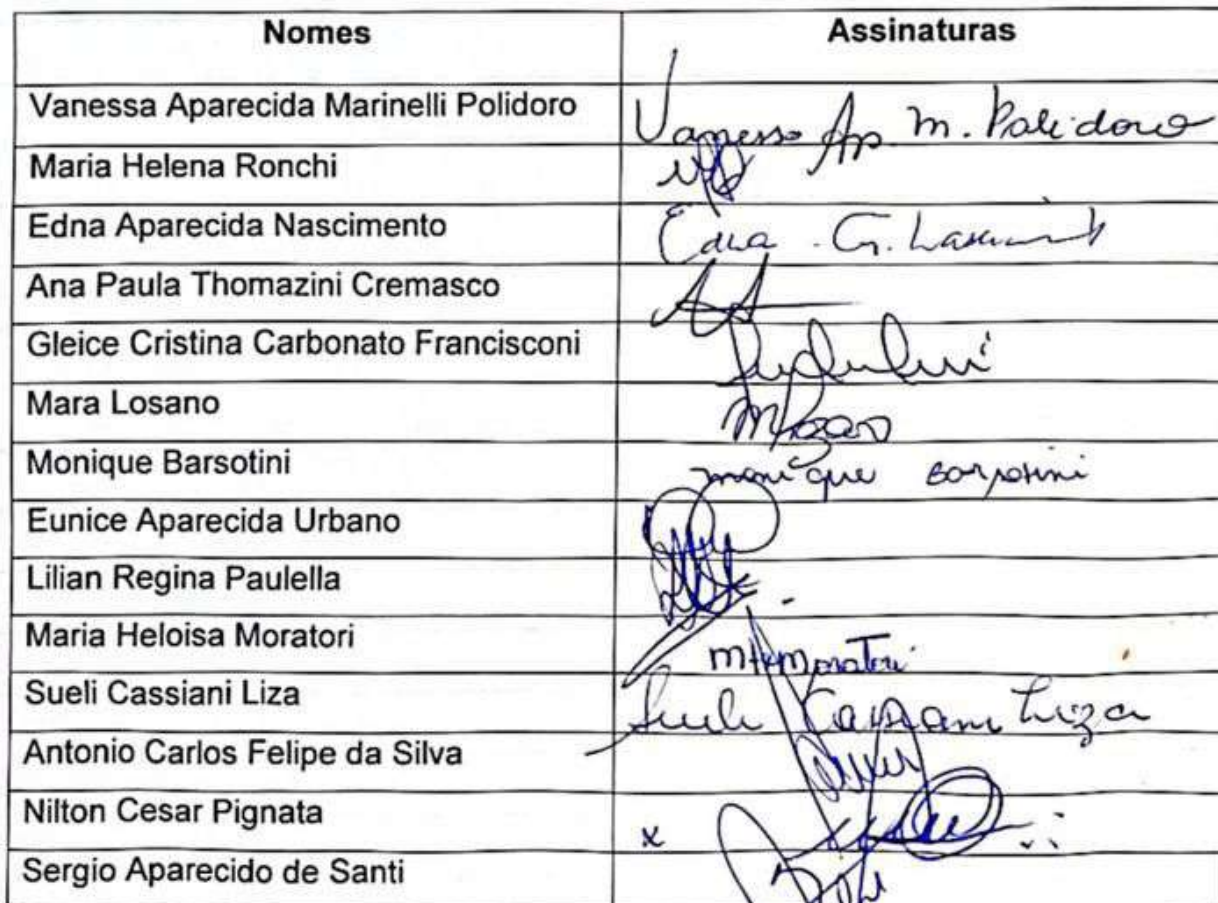 Nomes Assinaturas
Vanessa Aparecida Marinelli Polidoro Vanessa Ap. M. Polidoro
Maria Helena Ronchi
Edna Aparecida Nascimento Edna
Ana Paula Thomazini Cremasco
Gleice Cristina Carbonato Francisconi
Mara Losano
Monique Barsotini monique Barsotini
Eunice Aparecida Urbano
Lilian Regina Paulella
Maria Heloisa Moratori MHMoratori
Sueli Cassiani Liza Sueli Cassiani Liza
Antonio Carlos Felipe da Silva
Nilton Cesar Pignata x
Sergio Aparecido de Santi